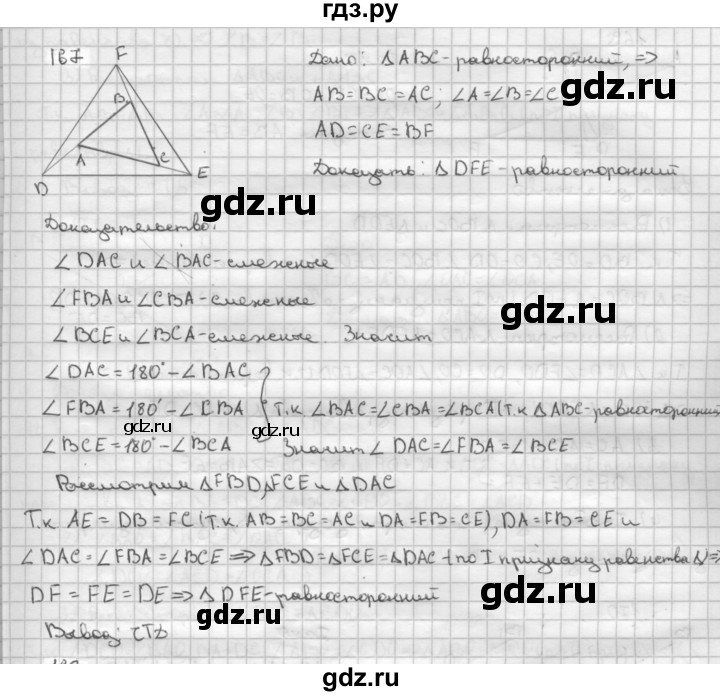 гдз.ру
167
F
B
A
C
D
E
Дано: △ABC-равносторонний, =>
AB=BC=AC; ∠A=∠B=∠C
gdz.ru
AD=CE=BF
Доказать: △DFE-равносторонний
gdz.ru
Доказательство:
∠DAC и ∠BAC-смежные
∠FBA и ∠CBA-смежные
gdz.ru
∠BCE и ∠BCA-смежные. Значит
∠DAC=180°-∠BAC
gdz.ru
∠FBA=180°-∠CBA } т.к ∠BAC=∠CBA=∠BCA (т.к △ABC-равносторонний
gdz.ru
∠BCE=180°-∠BCA Значит ∠DAC=∠FBA=∠BCE
gdz.ru
Рассмотрим △FBD, △FCE и △DAC
gdz.ru
Т.к AE=DB=FC (т.к. AB=BC=AC и DA=FB=CE), DA=FB=CE и
∠DAC=∠FBA=∠BCE => △FBD=△FCE=△DAC-(по I признаку равенства △ =>
DF=FE=DE => △DFE-равносторонний
gdz.ru
gdz.ru
Вывод: ЧТД
gdz.ru